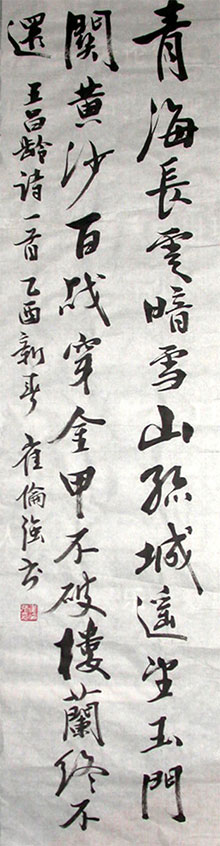 青海長雲暗雪山孤城遥望玉門
關黄沙百战穿金甲不破樓蘭终不
還 王昌龄诗一首乙酉新春 崔倫强书